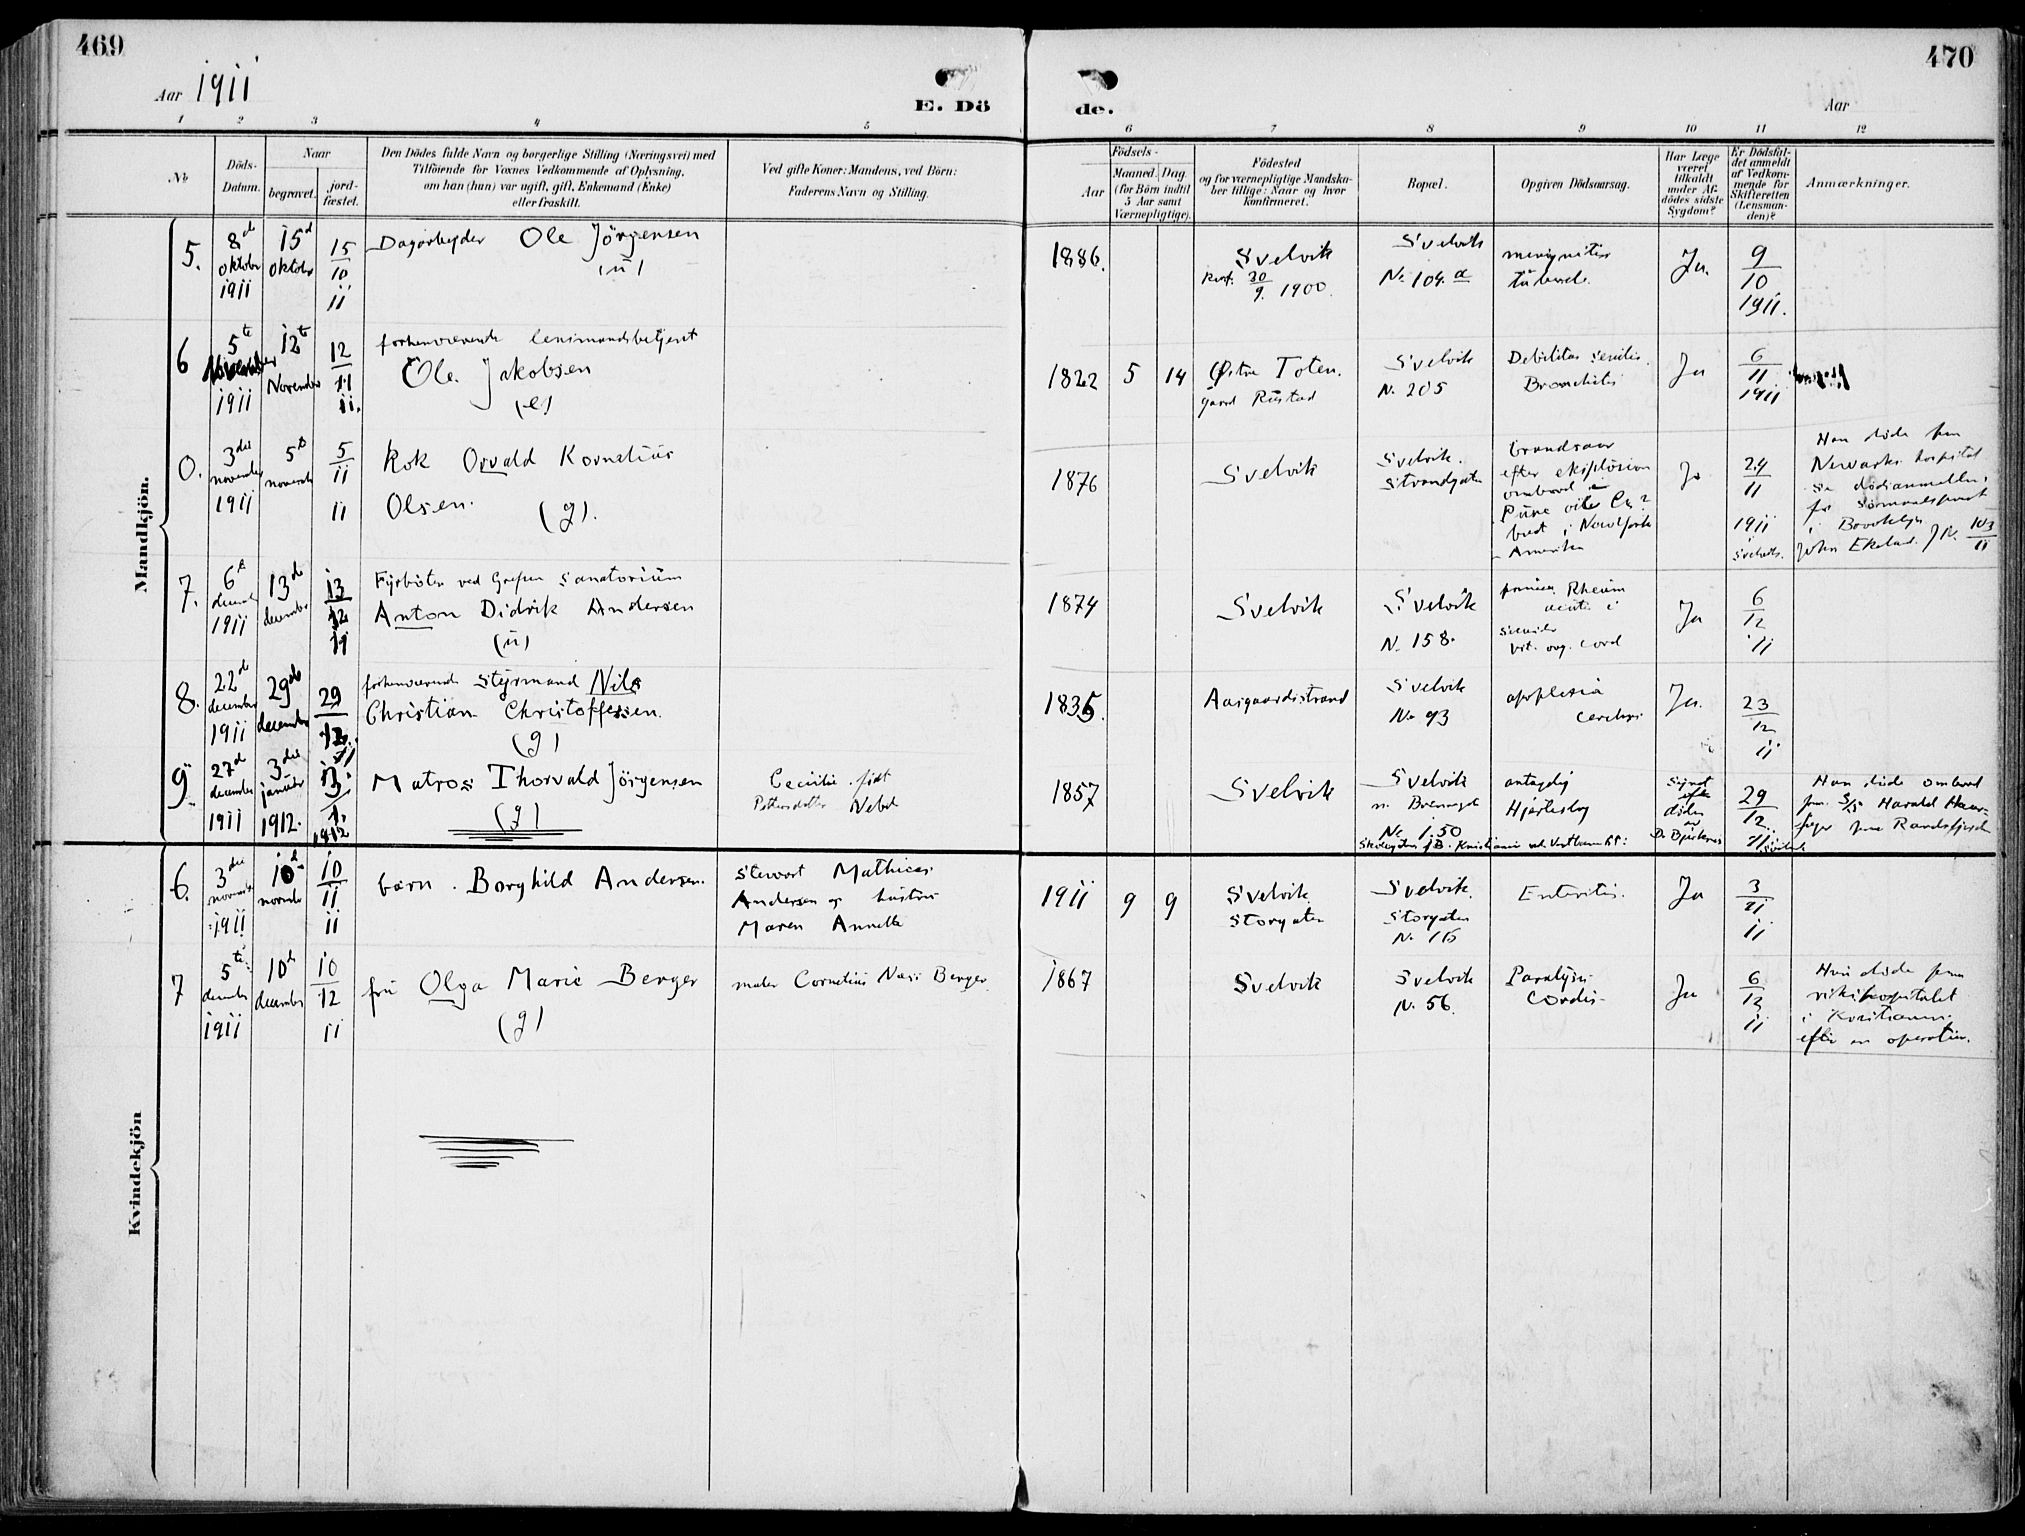 469
Aar 1911
E. Dö
1 2 3 4 5
No
Döds-
Datum.
Naar
begravet.
jord-
fæstet.
Den Dödes fulde Navn og borgerlige Stilling (Næringsvei) med
Tilföiende for Voxnes Vedkommende af Oplysning,
om han (hun) var ugift, gift, Enkemand (Enke)
eller fraskilt.
Ved gifte Koner: Mandens, ved Börn:
Faderens Navn og Stilling.
470
de.
Aar
6 7 8 9 10 11 12
Födsels-
Aar
Maaned. Dag.
(for Börn indtil
5 Aar samt
Værnepligtige).
Födested
og for værnepligtige Mandska-
ber tillige: Naar og hvor
konfirmeret.
Bopæl.
Opgiven Dödsaarsag.
Har Læge
været
tilkaldt
under Af-
dödes sidste
Sygdom?
Er Dödsfal-
det anmeldt
af Vedkom-
mende for
Skifteretten
(Lensman-
den)?
Anmærkninger.
Mandkjön.
5.
8d
oktober
1911
15d
oktober
15
10
11
Dagarbeyder Ole Jörgensen
(u)
1886.
Svelvik
konf. 30
9. 1900.
Svelvik
No 104.a
Ja.
9
10
1911.
6
5te
November
1911
12te
November
12
11
11.
forhenværende lensmandsbetjent
Ole Jakobsen
(e)
1822
5
14
Østre Toten.
gaard Rustad
Svelvik
N. 205
Debilitas senilis.
Bronchitis
Ja
6
11
1911
0.
3die
november
1911
5te
november
5
11
11
Kok Osvald Kornelius
Olsen. (g).
1876
Svelvik
Svelvik.
Strandgaten
brandsaar
efter eksplosion
ombord i
Pure oil Co?
Amerika
Ja
24
11
1911
Svelvik.
Han døde paa
Newarks hospital
John Ekeland. JN. 103
11
7.
6te
december
1911
13d
december
13
12
11
Fyrböter ved Grefsen Sanatorium
Anton Didrik Andersen
(u)
1874
Svelvik
Svelvik
N. 158.
Ja
6
12
11
8.
22d
december
1911
29de
december
29
12.
11
forhenværende Styrmand Nils
Christian Christoffersen.
(g)
Aasgaardsstrand
Svelvik
No 93
apoplexia
cerebri
Ja.
23
12
11
9.
27d
december
1911
3die
januar
1912.
3
1.
1912
Matros Thorvald Jörgensen
(g)
Cecilie født
Pettersdatter
1857
Svelvik
Svelvik
No 150
antagelig
Hjerteslag
29
12.
11
Han døde ombord
paa S/S Harald Haar-
fager
Kvindekjön
6.
3die
november
1911
10d
november
10
11
11
barn. Borghild Andersen.
stewart Mathias
Andersen og hustru
Maren Annette
1911
9
9
Svelvik
Storgaten
Svelvik.
Storgaten
N. 116
Enteritis.
Ja
3
11
11
7
5te
december
1911
10d
december
10
12
11
fru Olga Marie Berger
(g)
maler Cornelius Berger
1867
Svelvik
Svelvik
N. 56.
Paralysis
Cordis
Ja
6
12
11
Hun døde paa
rikshospitalet
i Kristiania
efter en operation.